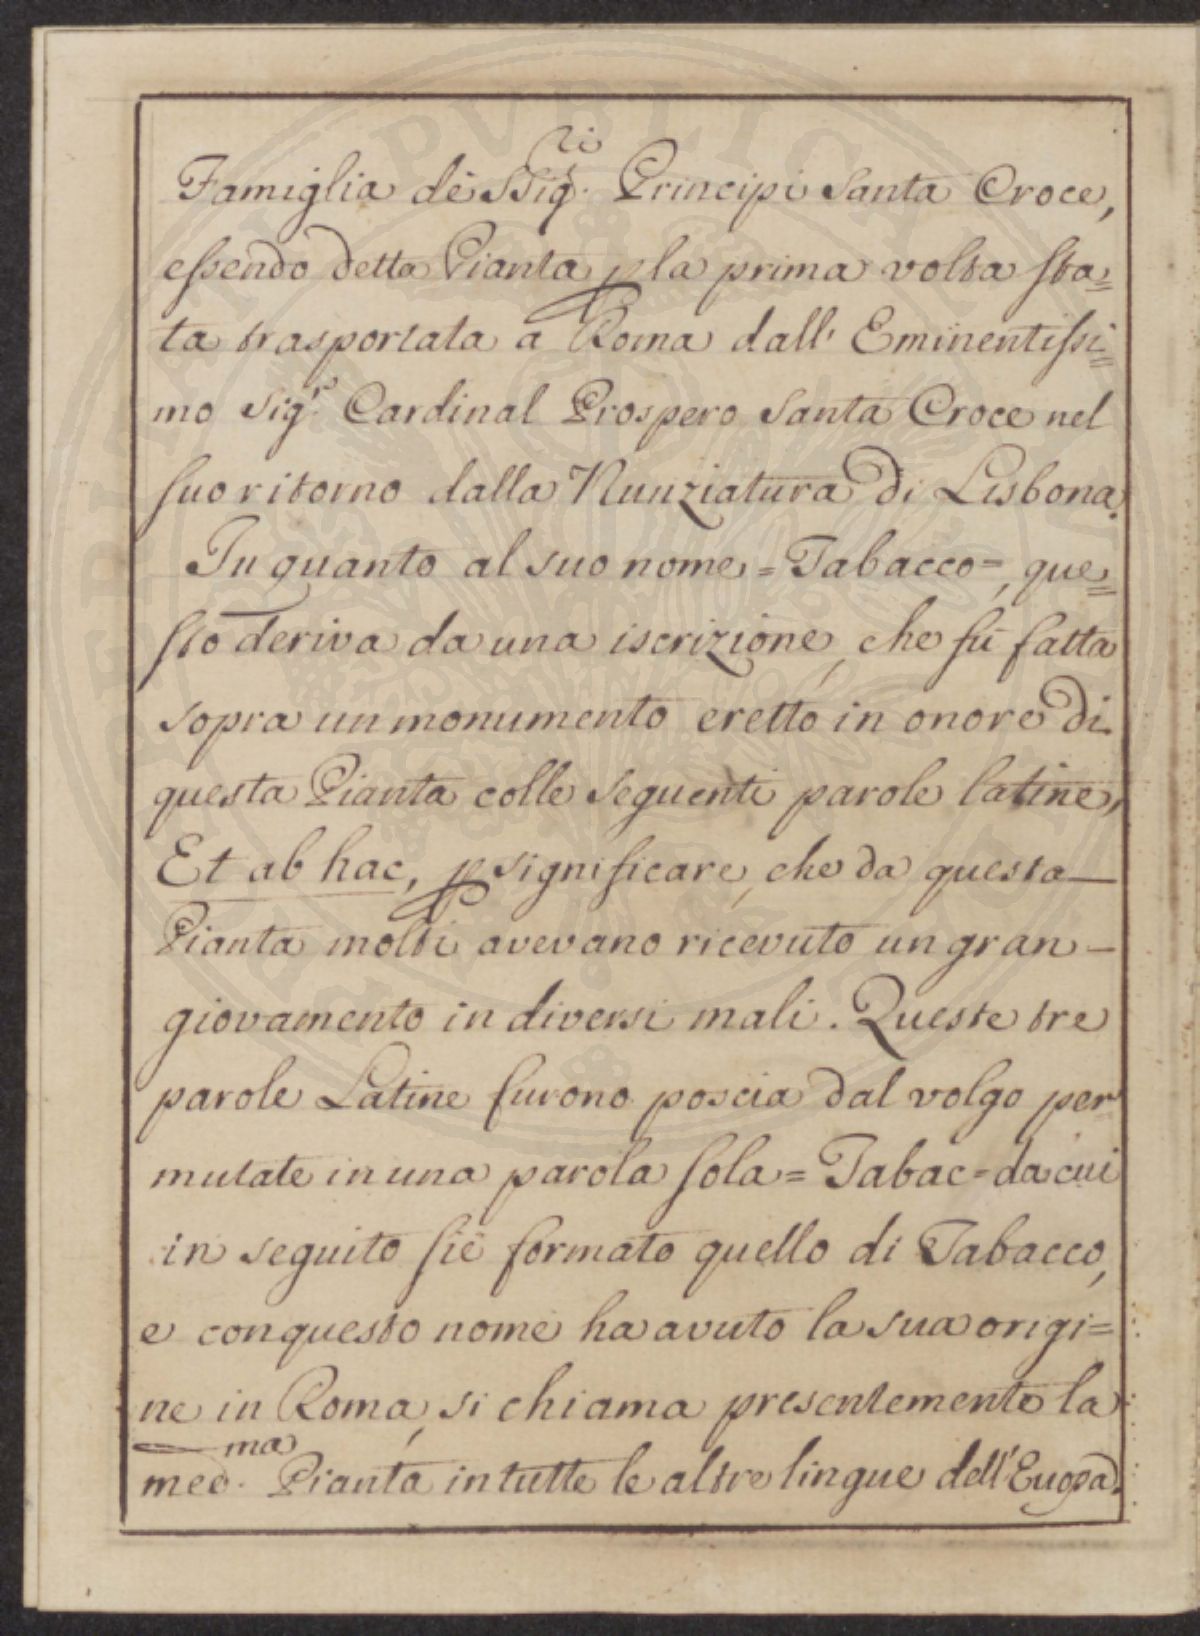 Famiglia dè SSig.ri Principi Santa Croce,
essendo detta Pianta p la prima volta sta=
ta trasportata a Roma dall' Eminentissi=
mo Sig.r Cardinal Prospero Santa Croce nel
suo ritorno dalla Nunziatura di Lisbona.
In quanto al suo nome = Tabacco =, que=
sto deriva da una iscrizione, che fù fatta
sopra un monumento eretto in onore di
questa Pianta colle seguenti parole latine,
Et ab hac, p significare, che da questa
Pianta molti avevano ricevuto un gran
giovamento in diversi mali. Queste tre
parole Latine furono poscia dal volgo per
mutate in una parola sola = Tabac = da cui
in seguito siè formato quello di Tabacco,
e con questo nome ha avuto la sua origi=
ne in Roma, si chiama presentemente la
med.ma Pianta in tutte le altre lingue dell' Euopa.